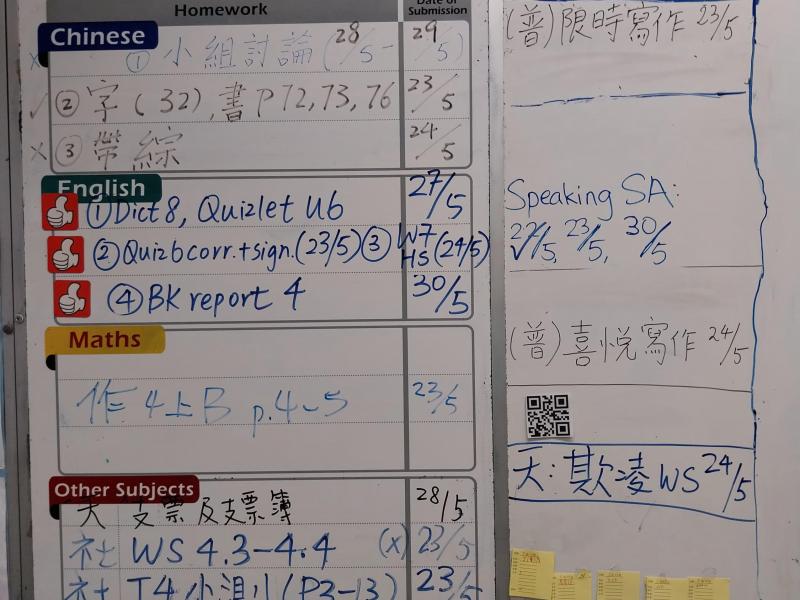 Homework
Date of Submission
Chinese
① 小組討論 (28/5- 29/5)
② 字(32), 書P72,73,76 23/5
③ 帶綜 24/5
English
① Dict 8, Quizlet U6 27/5
② Quiz 6 corr.+sign.(23/5) ③ W7 HS (24/5)
④ BK report 4 30/5
Maths
作 4上B p.4~5 23/5
Other Subjects
天 支票及支票簿 28/5
社 WS 4.3-4.4 (x) 23/5
社 T4小測 (P3-13) 23/5
(普)限時寫作 23/5
Speaking SA:
22/5, 23/5, 30/5
(普)喜悅寫作 24/5
天: 欺凌WS 24/5